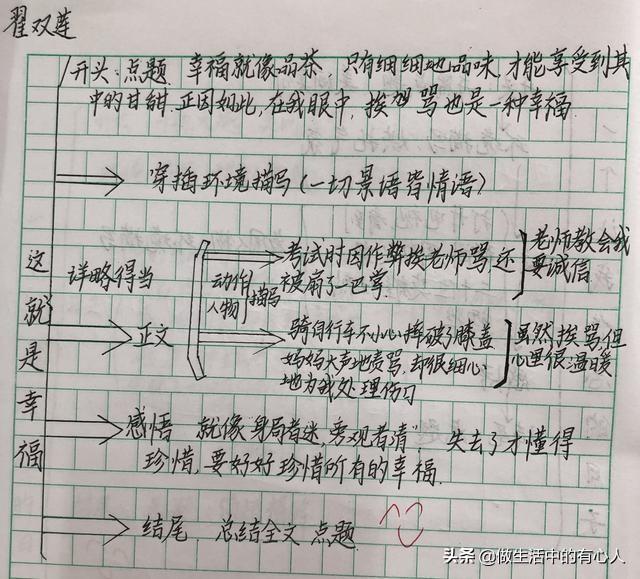 翟双莲
开头：点题 幸福就像品茶，只有细细地品味，才能享受到其
中的甘甜.正因如此，在我眼中，挨骂也是一种幸福.
穿插环境描写（一切景语皆情语）
这就是幸福
详略得当
正文
动作
人物
描写
考试时因作弊挨老师骂，还
被扇了一巴掌.
老师教会我
要诚信
骑自行车不小心摔破了膝盖
妈妈大声地责骂，却很细心
地为我处理伤口
虽然挨骂，但
心里很温暖
感悟 就像“身局者迷 旁观者清”，失去了才懂得
珍惜，要好好珍惜所有的幸福.
结尾 总结全文 点题
头条 @做生活中的有心人